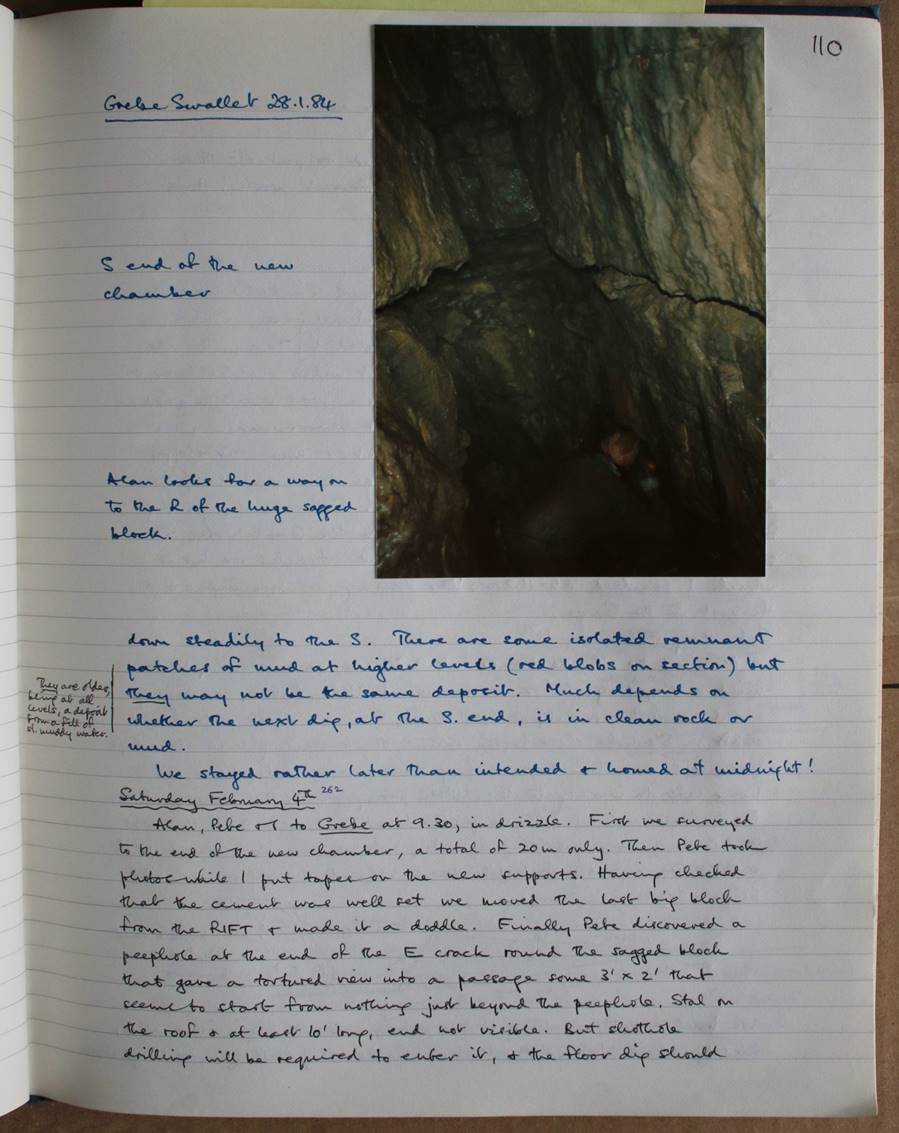 110
Grebe Swallet 28.1.84
S end of the new
chamber
Alan looks for a way on
to the R of the huge sagged
block.
down steadily to the S. There are some isolated remnant
patches of mud at higher levels (red blobs on section) but
they may not be the same deposit. Much depends on
whether the next dig, at the S. end, is in clean rock or
mud.
They are older,
being at all
levels, a deposit
from a fill of
sl. muddy water.
We stayed rather later than intended & homed at midnight!
Saturday February 4th 262
Alan, Pete & I to Grebe at 9.30, in drizzle. First we surveyed
to the end of the new chamber, a total of 20m only. Then Pete took
photos while I put tapes on the new supports. Having checked
that the cement was well set we moved the last big block
from the RIFT & made it a doddle. Finally Pete discovered a
peephole at the end of the E crack round the sagged block
that gave a tortured view into a passage some 3' x 2' that
seems to start from nothing just beyond the peephole. Stal on
the roof & at least 10' long, end not visible. But shothole
drilling will be required to enter it, & the floor dig should